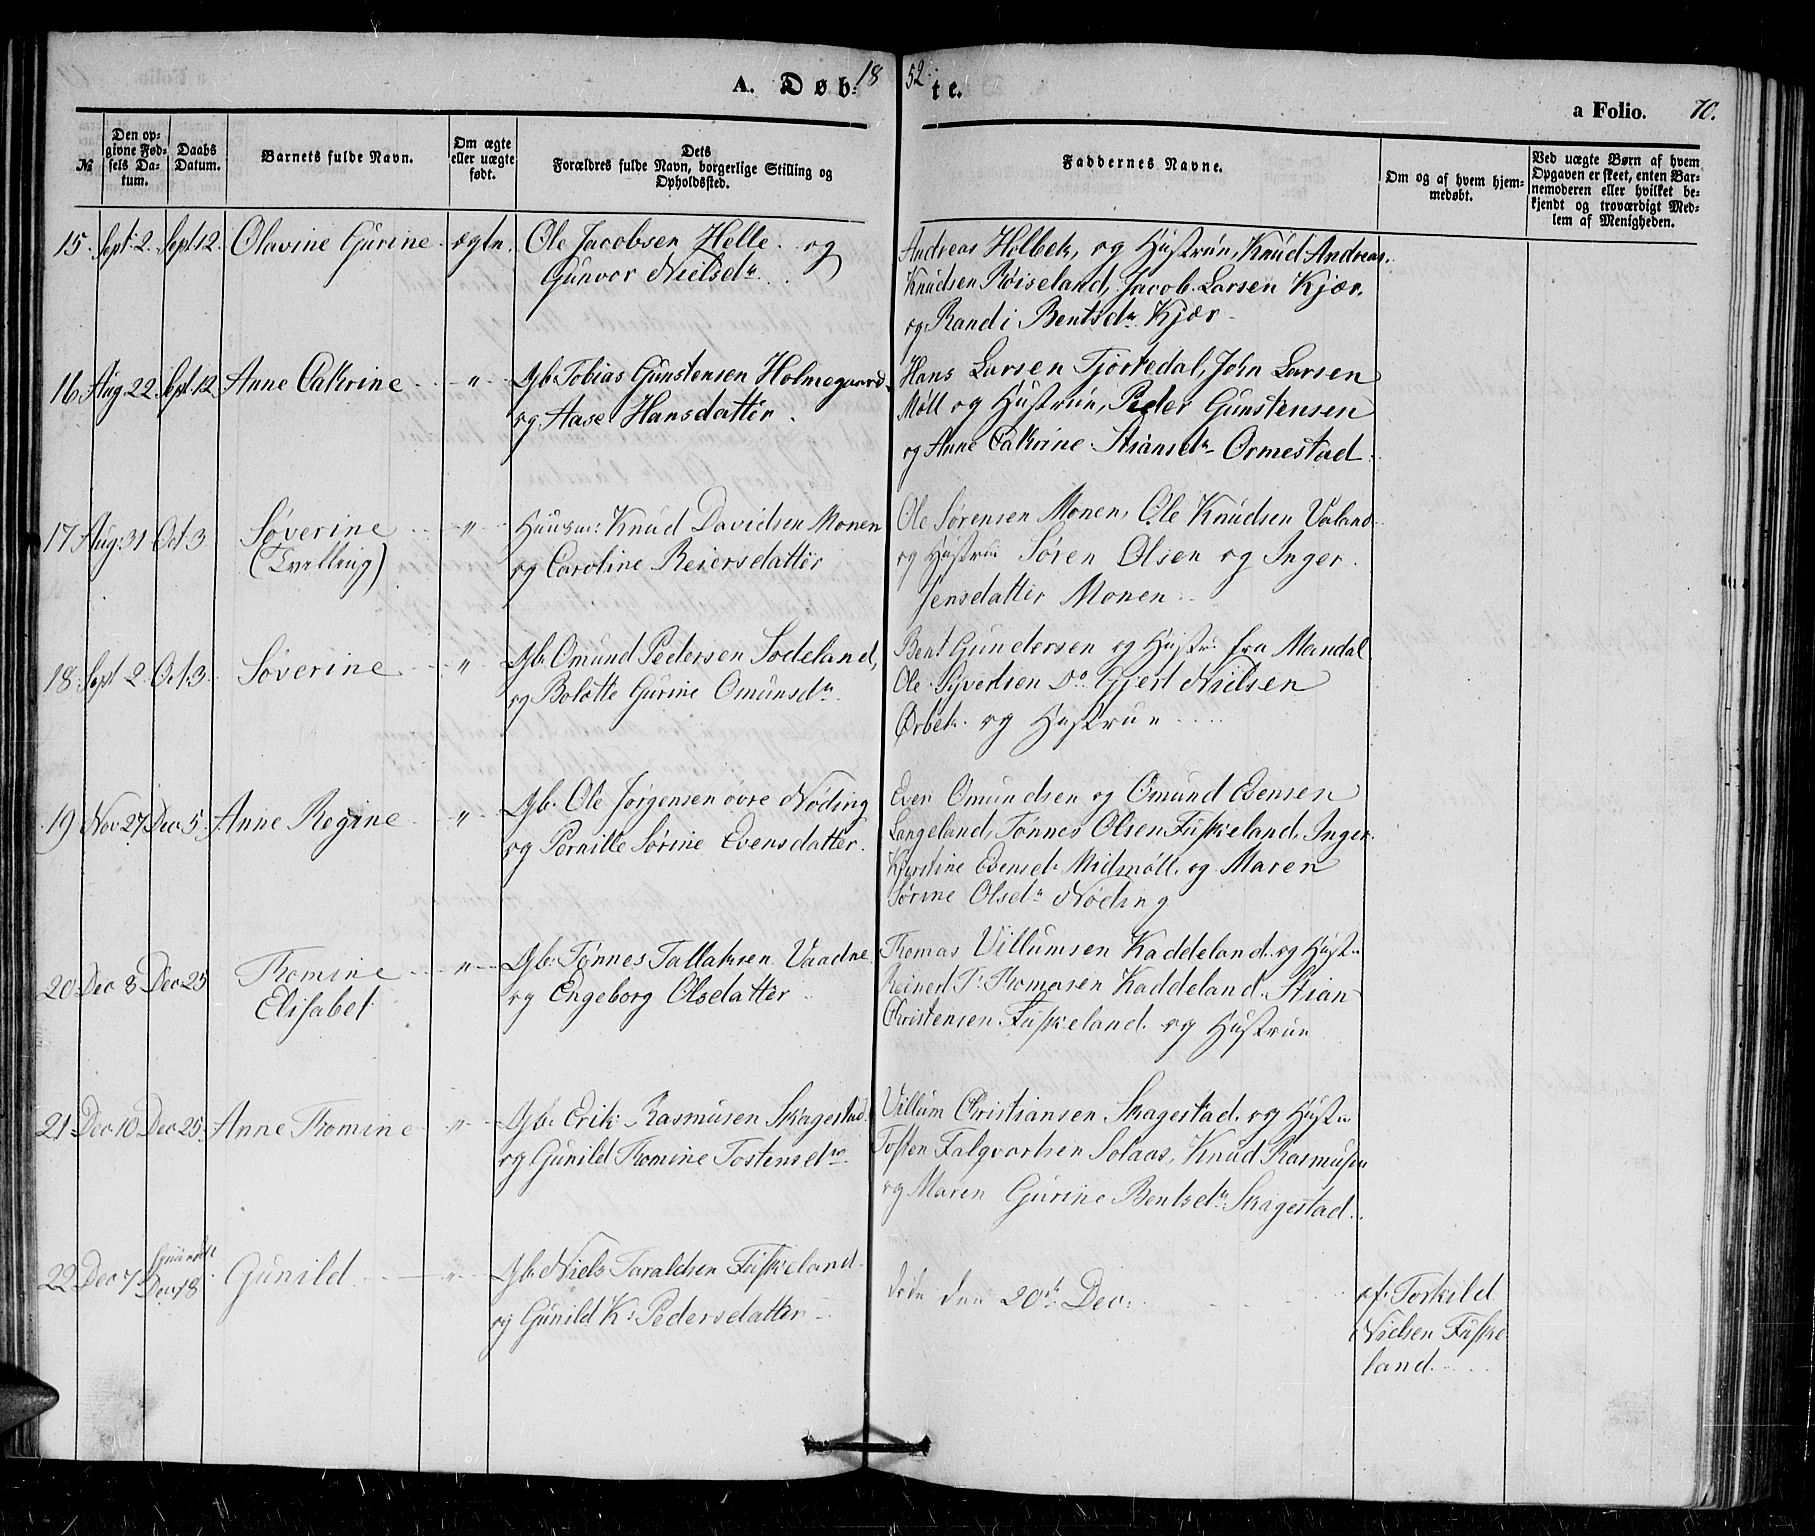 A. Døb 18 52 te.
a Folio. 70.
№
Den op-
givne Fød-
sels Da-
tum.
Daabs
Datum.
Barnets fulde Navn.
Om ægte
eller uægte
født.
Dets
Forældres fulde Navn, borgerlige Stilling og
Opholdssted.
Faddernes Navne.
Om og af hvem hjem-
medøbt.
Ved uægte Børn af hvem
Opgaven er skeet, enten Bar-
nemoderen eller hvilket be-
kjendt og troværdigt Med-
lem af Menigheden.
15. Sept. 2. Sept. 12. Olavine Gurine. ægte. Ole Jacobsen Helle. og
Gunvor Nielsdr.
Andreas Holbek, og Hustrue, Knud Andreas
Knudsen Røiseland, Jacob Larsen Kjær.
og Randi Bentsdr. Kjær.
16 Aug 22. Sept. 12. Anne Catrine " Gb. Tobias Gunstensen Holmegaard.
og Aase Hansdatter.
Hans Larsen Tjortedal, John Larsen
Møll og Hustrue, Peder Gunstensen
og Anne Catrine Stiansdr. Ormestad.
17 Aug. 31 Oct. 3. Søverine " Huusm: Knud Davidsen Monen
(Tvelling) og Caroline Reiersdatter
Ole Sørensen Monen, Ole Knudsen Valand
og Hustrue Søren Olsen og Inger
Jensdatter Monen.
18. Sept 2. Oct. 3. Søverine " Gb. Omund Pedersen Sodeland,
og Bolotte Gurine Omunsdr.
Bent Gundersen og Hustr: fra Mandal
Ole Syvertsen Do. Gjert Nielsen
Ørbek. og Hustrue
19 Nov 27 Dec 5. Anne Regine " Gb. Ole Jørgensen øvre Nøding
og Pernille Sørine Evensdatter.
Even Omundsen og Omund Evensen
Langeland, Tønnes Olsen Fuskeland. Inger
Kjerstine Evensdr. Midmøll. og Maren
Sørine Olsdr. Nøding
20 Dec 8 Dec 25 Tromine " Gb. Tønnes Tallaksen Vaadne
Elisabet og Engeborg Olsdatter
Thomas Villumsen Kaddeland. og Hustr.
Reinert T. Thomasen Kaddeland. Stian
Christensen Fuskeland. og Hustrue
21 Dec 10 Dec 25 Anne Tomine " Gb. Erik Rasmusen Skagestad.
og Gunild Tomine Tostensdr.
Villum Christiansen Skagestad. og Hustr.
Tosten Falqvortsen Solaas, Knud Rasmusen
og Maren Gurine Bentsdr. Skagestad.
22 Dec 7 Dec 18 Gunild. " Gb. Niels Taraldsen Fuskeland.
og Gunild K. Pedersdatter
døde den 20de Dec:
af Torkild
Nielsen Fuske
land.